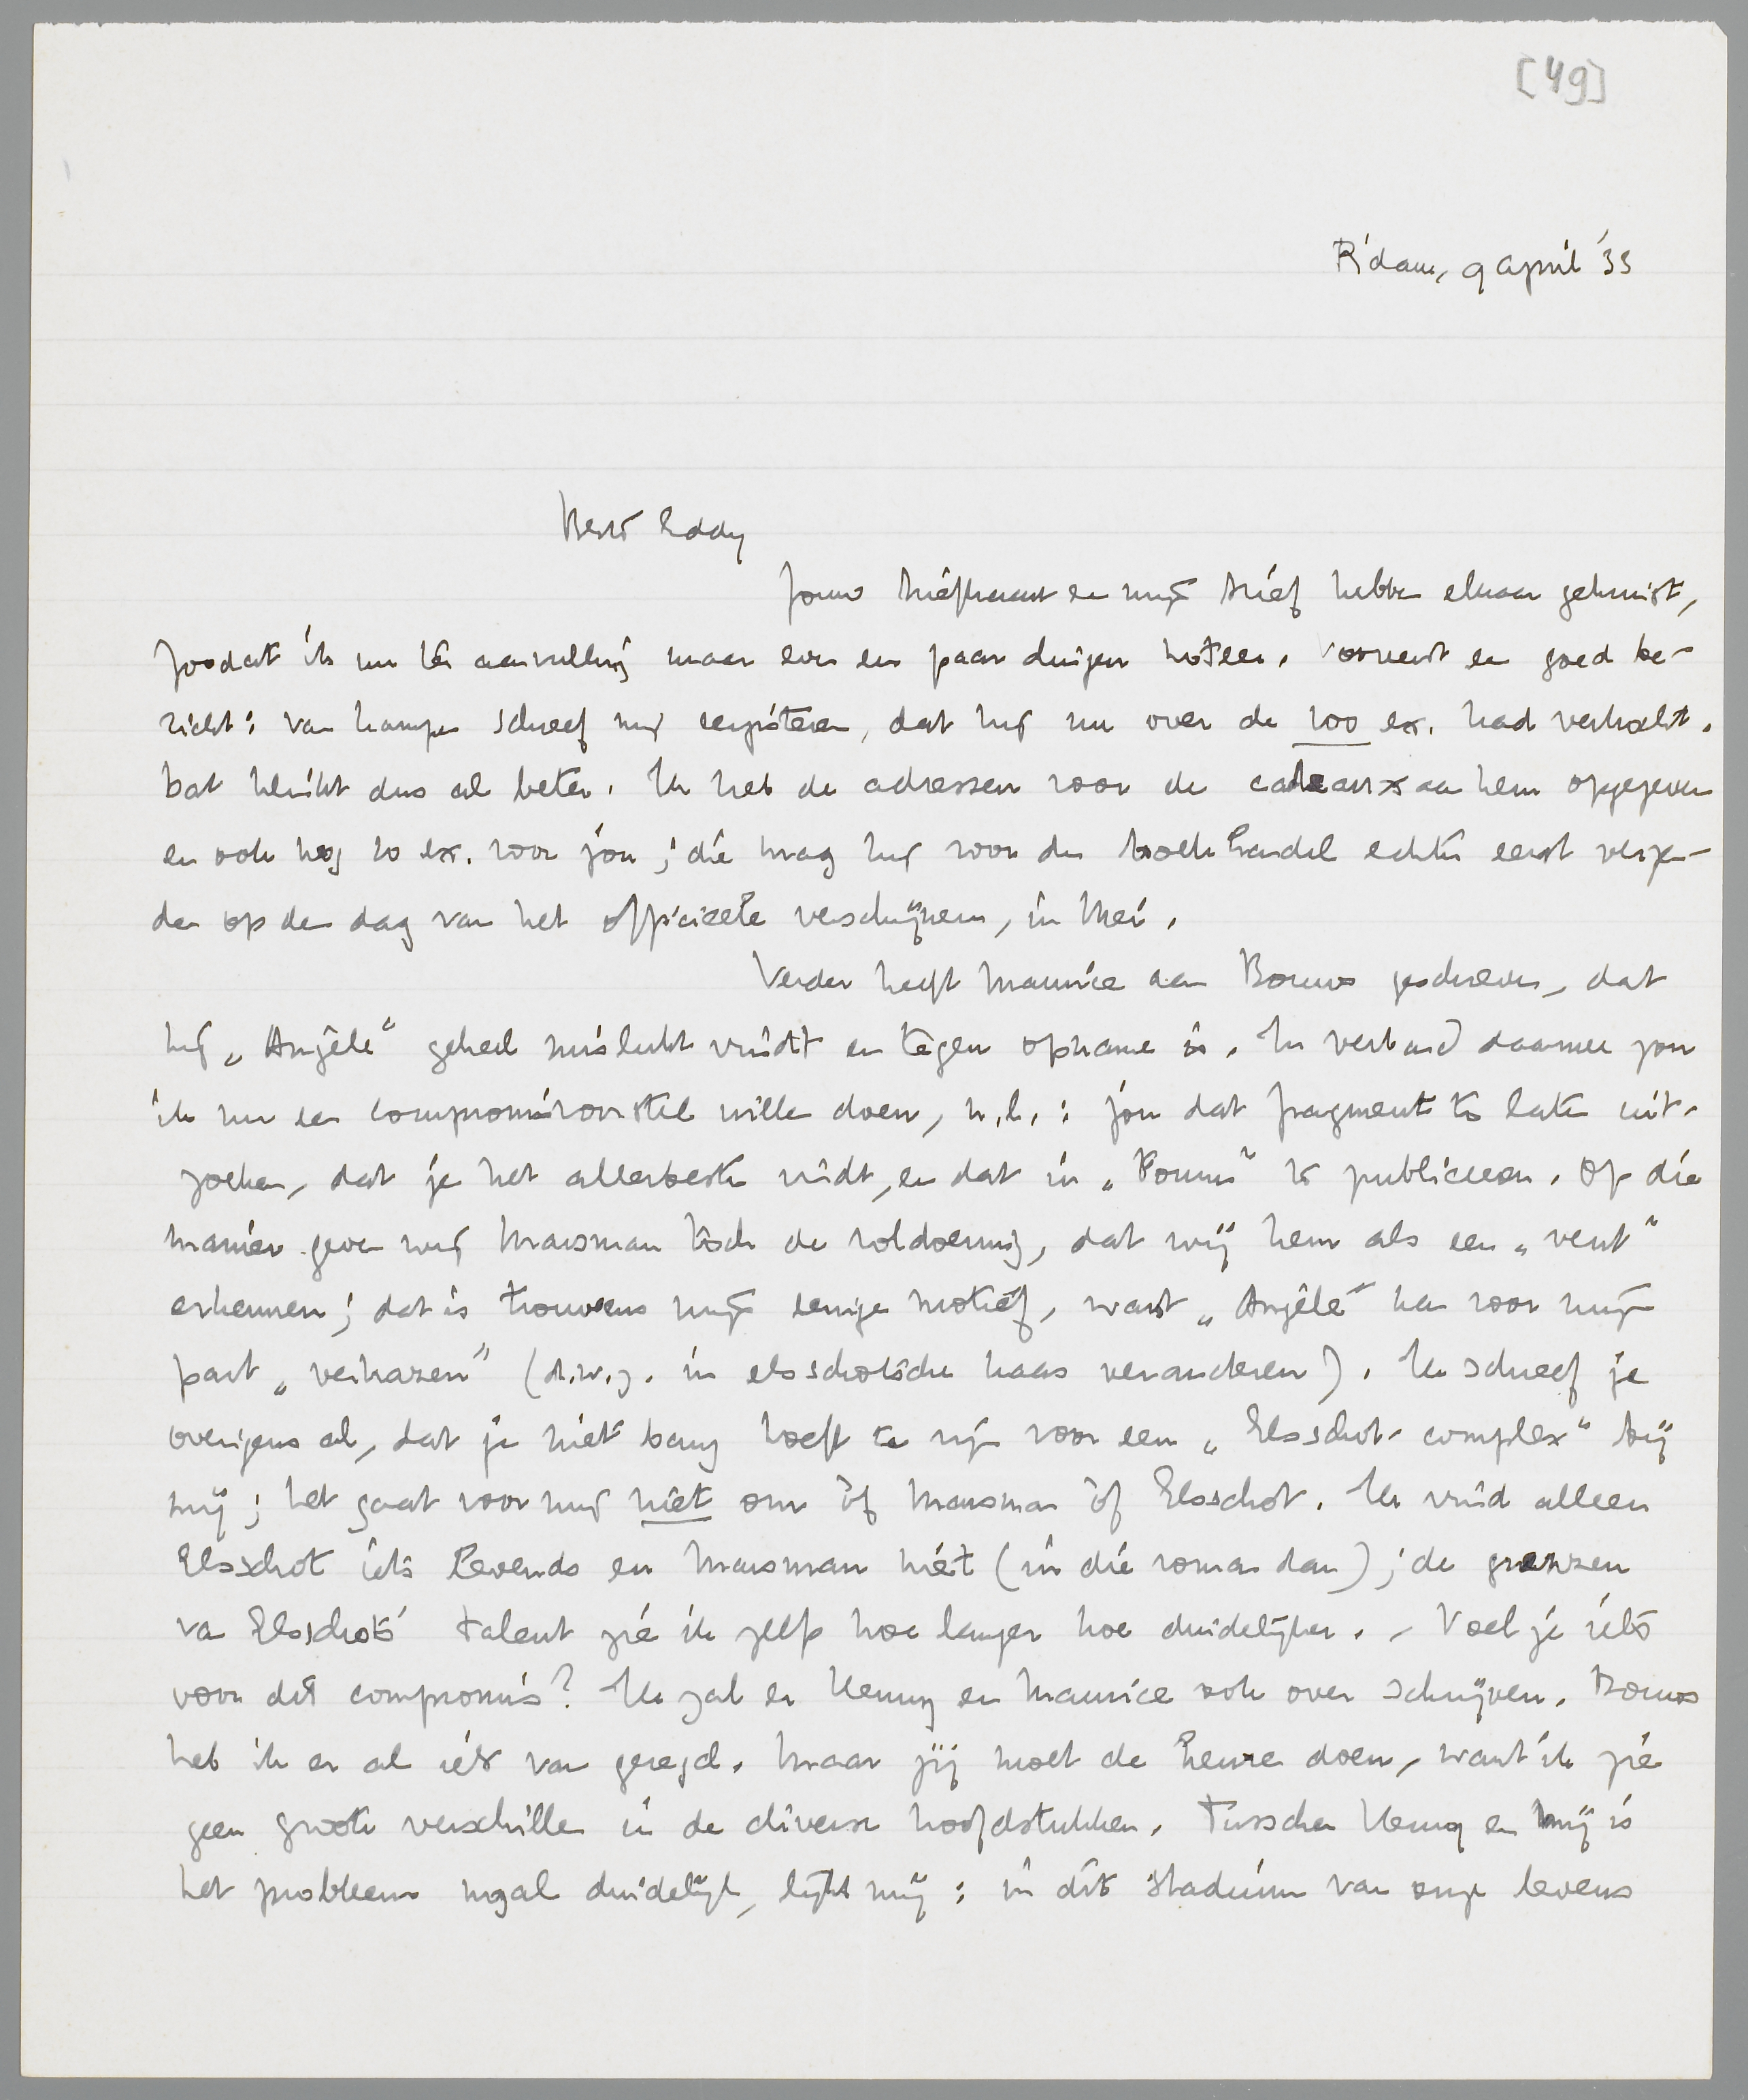 [49]
R'dam, 9 april '33
Beste Eddy
Jouw briefkaart en mijn brief hebben elkaar gekruist,
zoodat ik nu ter aanvulling maar even een paar dingen noteer. Vooreerst een goed be-
richt: van Kampen schreef mij eergisteren, dat hij nu over de 100 ex. had verkocht.
Dat klinkt dus al beter. Ik heb de adressen voor de cadeaux aan hem opgegeven
en ook nog 10 ex. voor jou; die mag hij voor den boekhandel echter eerst verzen-
den op den dag van het officieele verschijnen, in Mei.
Verder heeft Maurice aan Bouws geschreven, dat
hij „Angèle" geheel mislukt vindt en tegen opname is. In verband daarmee zou
ik nu een compromisvoorstel willen doen, n.l.: jou dat fragment te laten uit-
zoeken, dat je het allerbeste vindt, en dat in „Forum" te publiceeren. Op die
manier geven wij Marsman toch de voldoening, dat wij hem als een „vent"
erkennen; dat is trouwens mijn eenige motief, want „Angèle" kan voor mijn
part „verhazen" (d.w.z. in elsschotsche haas veranderen). Ik schreef je
overigens al, dat je niet bang hoeft te zijn voor een „Elsschot-complex" bij
mij; het gaat voor mij niet om òf Marsman òf Elsschot. Ik vind alleen
Elsschot iets levends en Marsman niet (in die roman dan); de grenzen
van Elsschots' talent zie ik zelf hoe langer hoe duidelijker. - Voel je iets
voor dit compromis? Ik zal er Henny en Maurice ook over schrijven. Bouws
heb ik er al iets van gezegd. Maar jij moet de keuze doen, want ik zie
geen groote verschillen in de diverse hoofdstukken. Tusschen Henny en mij is
het probleem nogal duidelijk, lijkt mij: in dit stadium van onze levens